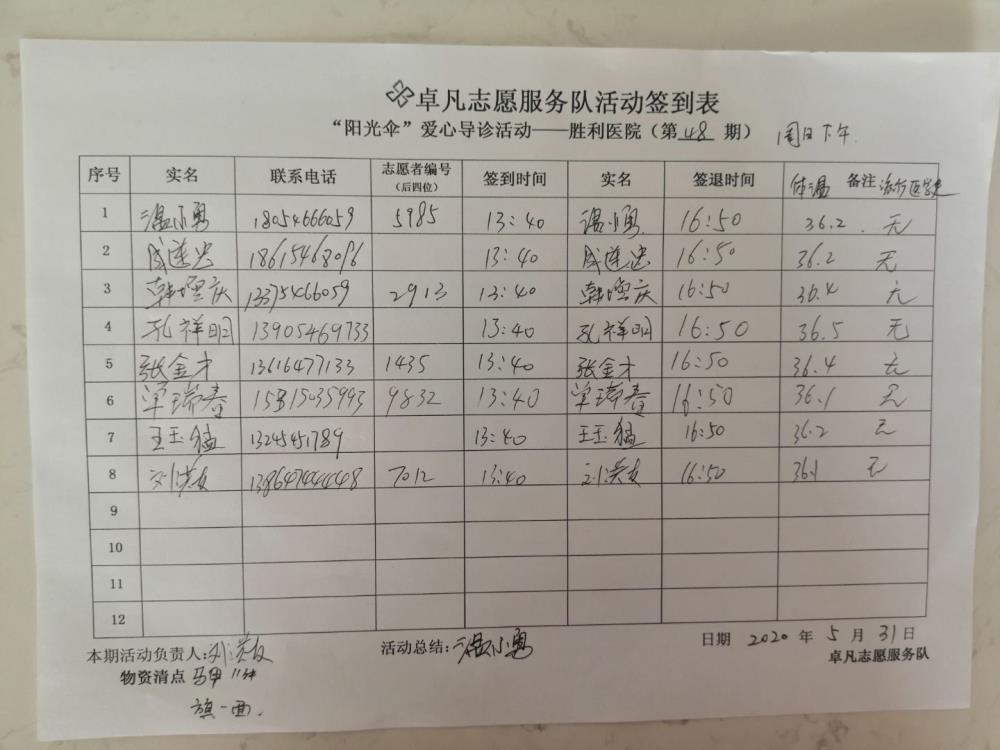 卓凡志愿服务队活动签到表
“阳光伞”爱心导诊活动——胜利医院（第48期） 周日下午
序号 实名 联系电话 志愿者编号（后四位） 签到时间 实名 签退时间 体温 备注
1 温小勇 18054666059 5985 13:40 温小勇 16:50 36.2 无
2 成莲忠 18615468096 13:40 成莲忠 16:50 36.2 无
3 韩增庆 13375466059 2913 13:40 韩增庆 16:50 36.4 无
4 孔祥明 13905469733 13:40 孔祥明 16:50 36.5 无
5 张金才 13616477133 1435 13:40 张金才 16:50 36.4 无
6 单瑞春 15315035993 9832 13:40 单瑞春 16:50 36.1 无
7 王玉猛 13245451789 13:40 王玉猛 16:50 36.2 无
8 刘洪友 7012 13:40 刘洪友 16:50 36.1 无
9
10
11
12
本期活动负责人:刘洪友 活动总结:温小勇 日期 2020 年 5 月 31 日
物资清点 马甲 11件 卓凡志愿服务队
旗一面.